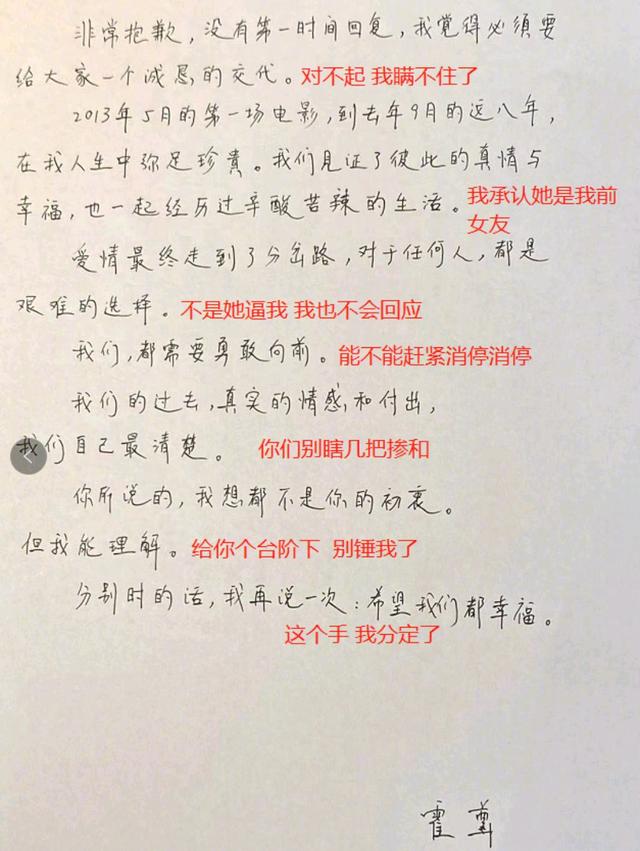 非常抱歉，没有第一时间回复，我觉得必须要
给大家一个诚恳的交代。对不起 我瞒不住了
2013年5月的第一场电影，到去年9月的近八年，
在我人生中弥足珍贵。我们见证了彼此的真情与
幸福，也一起经历过辛酸苦辣的生活。我承认她是我前
女友
爱情最终走到了分岔路，对于任何人，都是
艰难的选择。不是她逼我 我也不会回应
我们，都需要勇敢向前。能不能赶紧消停消停
我们的过去，真实的情感和付出，
我们自己最清楚。你们别瞎几把掺和
你所说的，我想都不是你的初衷。
但我能理解。给你个台阶下 别锤我了
分别时的话，我再说一次：希望我们都幸福。
这个手 我分定了
霍尊